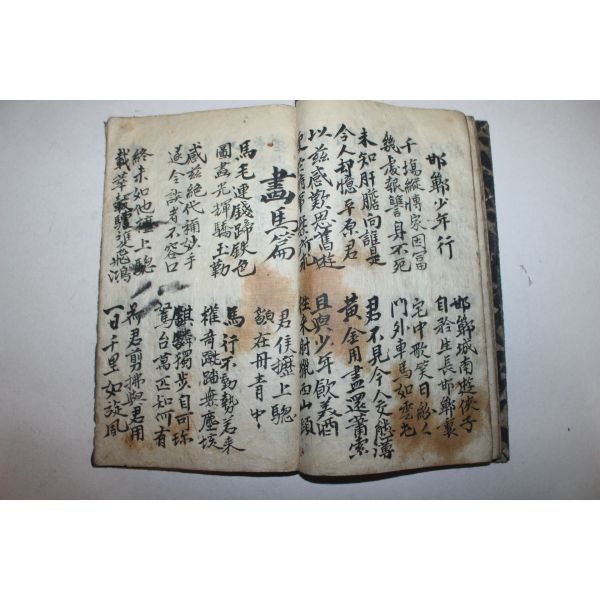 邯鄲少年行
邯鄲城南遊俠子
自矜生長邯鄲裏
千塲縱博家因富
幾處報讐身不死
宅中歌笑日紛人
門外車馬如雲屯
未知肝膽向誰是
今人却憶平原君
君不見今人交態薄
黃金用盡還蕭索
以茲感歎思舊遊
更於時事無所求
且與少年飲美酒
往來射獵西山頭
畫馬篇
君侯櫪上驄
貌在丹青中
馬毛連錢蹄鉄色
圖畫光輝驕玉勒
馬行不動勢若來
權奇蹴踏無塵埃
感茲絶代稱妙手
遂令談者不容口
麒麟獨步自可珎
駑台萬匹知何有
終未如他櫪上驄
載華轂騁飛鴻
荷君剪拂與君用
一日千里如旋風